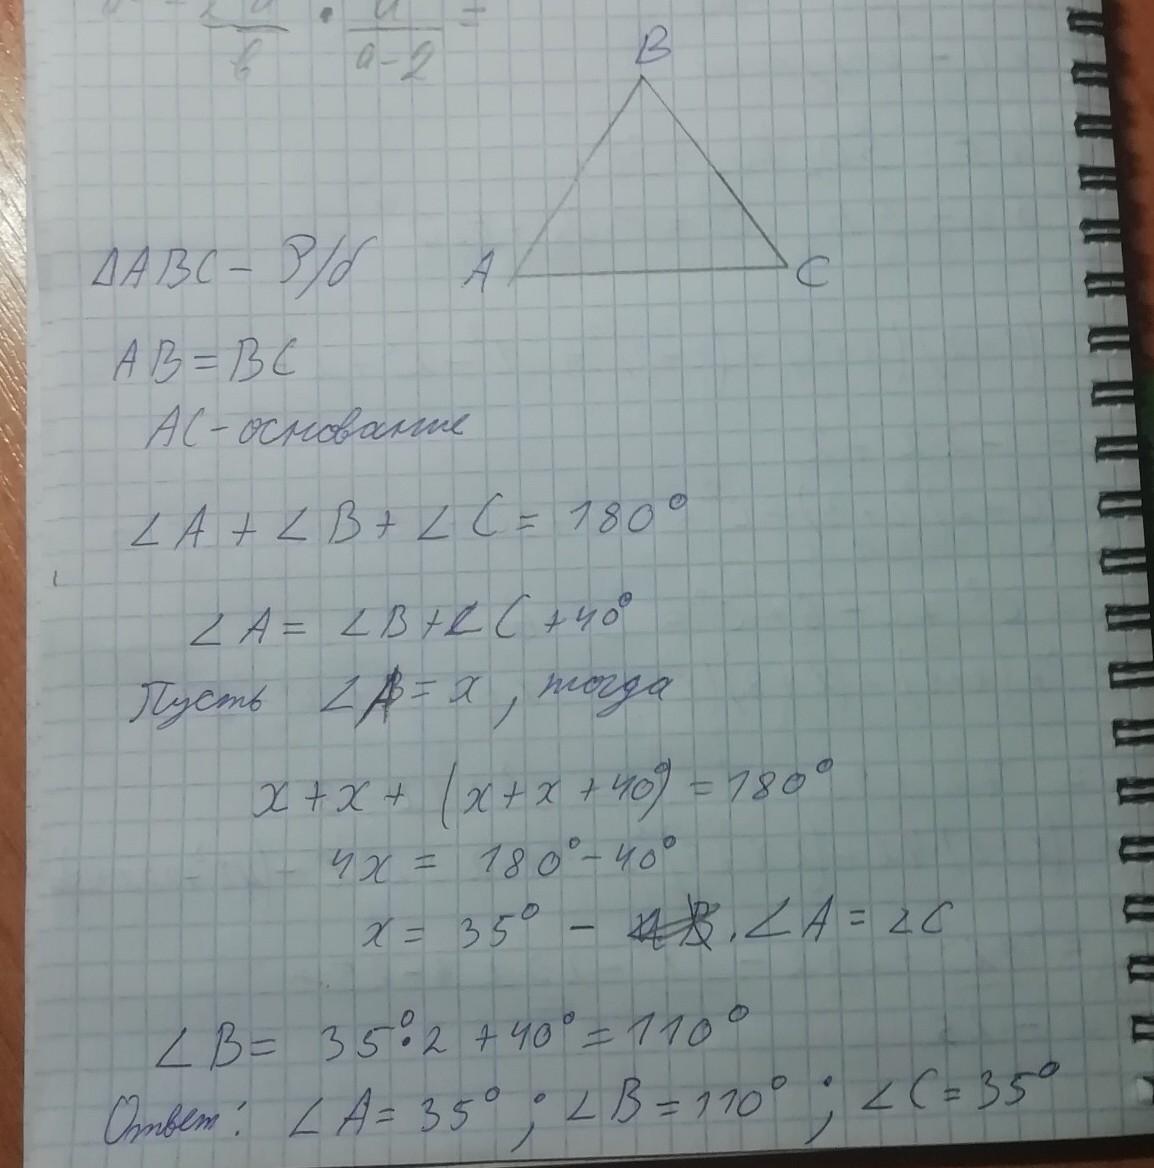 a
b
a-2
=
B
A
C
ΔABC - Р/б
AB = BC
AC - основание
∠A + ∠B + ∠C = 180°
∠A = ∠B + ∠C + 40°
Пусть ∠A = x, тогда
x + x + (x + x + 40°) = 180°
4x = 180° - 40°
x = 35° - ∠A = ∠C
∠B = 35° · 2 + 40° = 110°
Ответ: ∠A = 35° ; ∠B = 110° ; ∠C = 35°